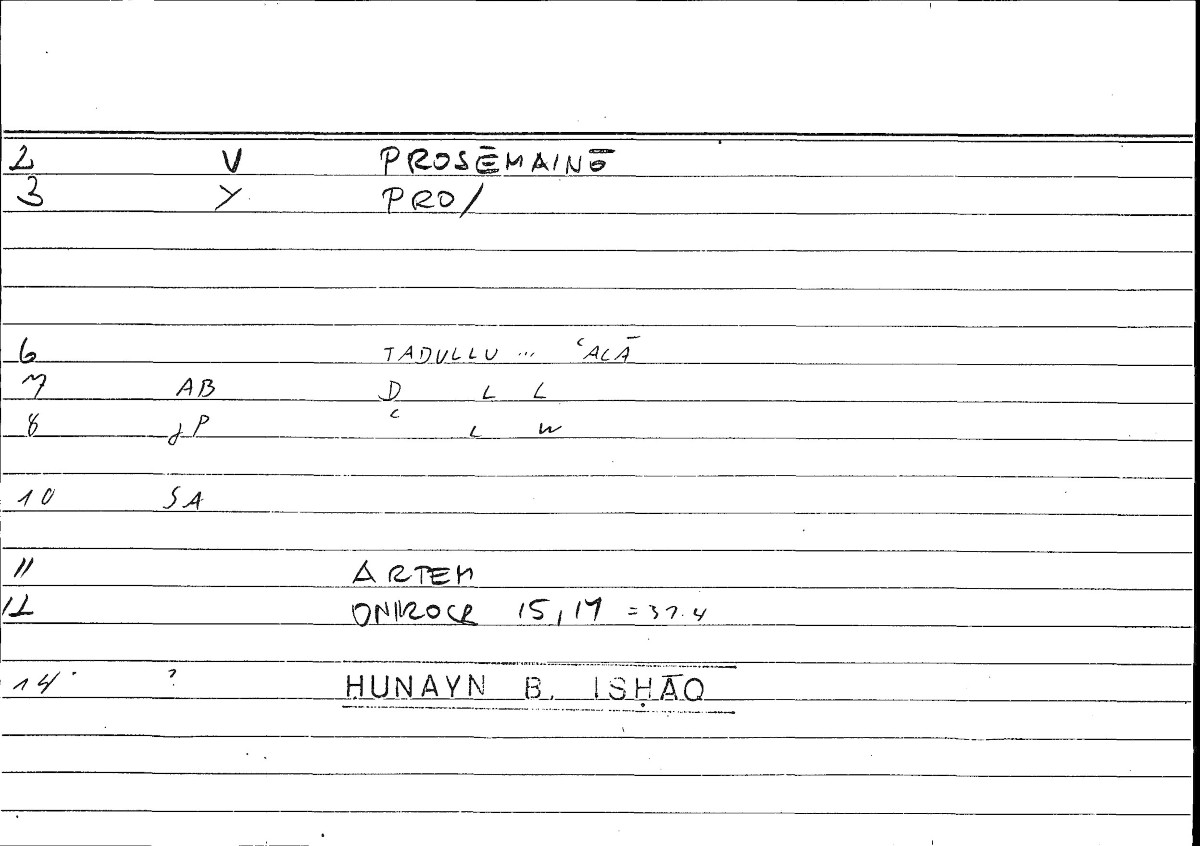 2 V PROSĒMAINŌ
3 Y PRO/
6 TADULLU ... ʿALĀ
7 AB D L L
8 JP ʿ L W
10 SA
11 ARTEM
12 ONIROCR 15,17 = 37.4
14 ? ḤUNAYN B. ISḤĀQ